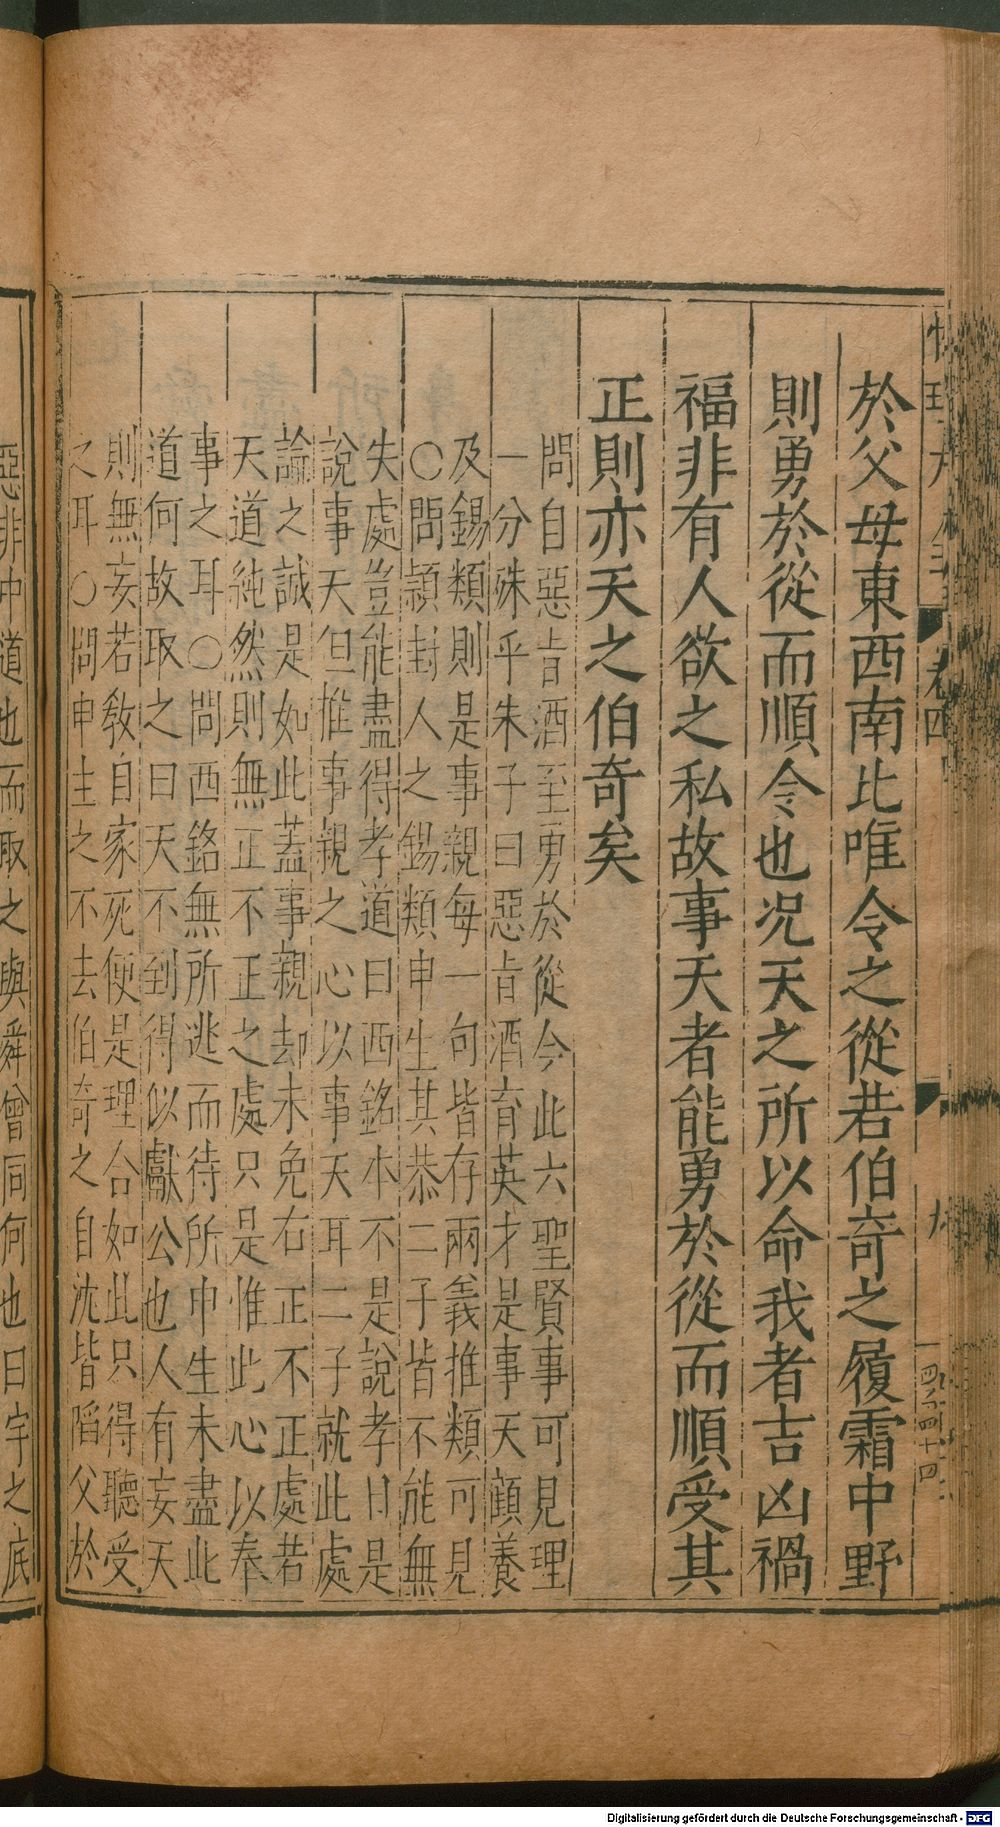 卷四
於父母東西南北唯令之從若伯奇之履霜中野
則勇於從而順令也况天之所以命我者吉凶禍
福非有人欲之私故事天者能勇於從而順受其
正則亦天之伯奇矣
問自惡旨酒至勇於從令此六聖賢事可見理
一分殊乎朱子曰惡旨酒育英才是事天顧養
及錫類則是事親每一句皆存兩義推類可見
○問潁封人之錫類申生其恭二子皆不能無
失處豈能盡得孝道曰西銘本不是說孝只是
說事天但推事親之心以事天耳二子就此處
論之誠是如此蓋事親却未免有正不正處若
天道純然則無正不正之處只是惟此心以奉
事之耳○問西銘無所逃而待所申生未盡此
道何故取之曰天不到得似獻公也人有妄天
則無妄若敎自家死便是理合如此只得聽受
之耳○問申生之不去伯奇之自沈皆陷父於
惡非中道也而取之與舜曾同何也曰宇之底
Digitalisierung gefördert durch die Deutsche Forschungsgemeinschaft - DFG